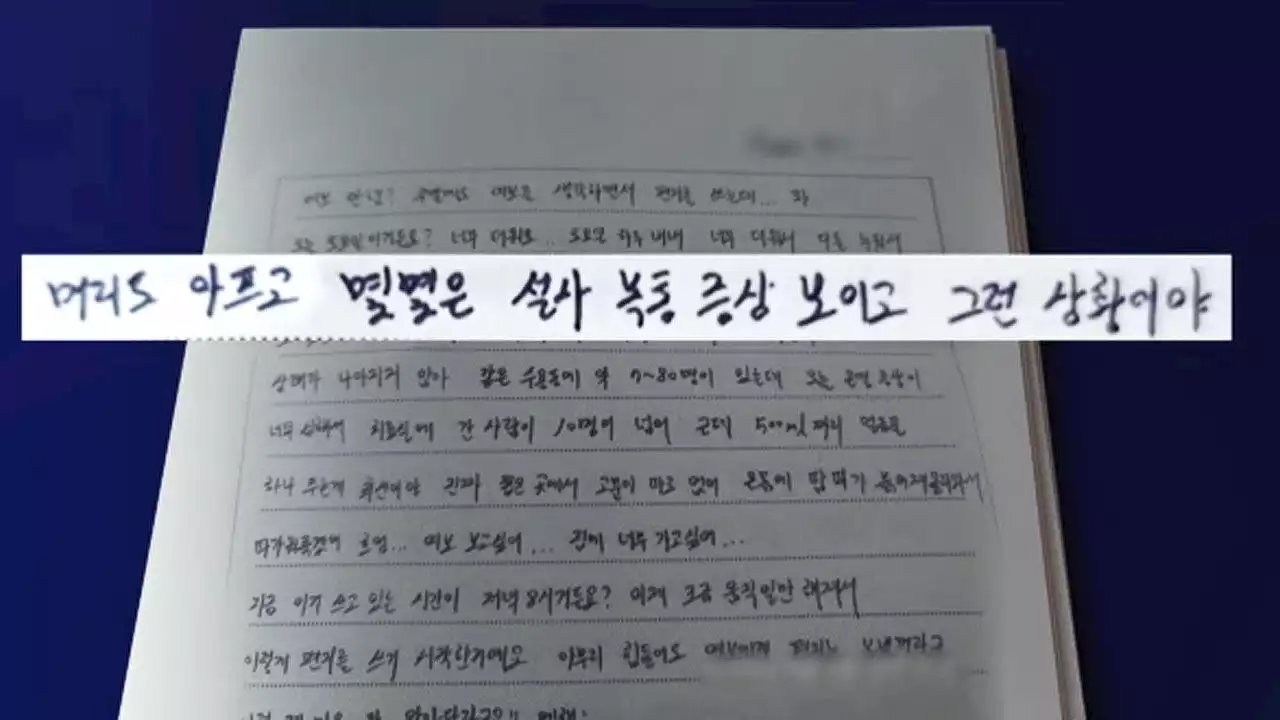 생각하면서 편지를 쓰는데... 와
오늘 토요일이거든요? 너무 더워요... 토요일 하루 내내 너무 더워서 다들 누워서
머리도 아프고 몇몇은 설사 복통 증상 보이고 그런 상황이야
상태가 나아지지 않아 같은 수용동에 약 7~80명이 있는데 오늘 온열 증상이
너무 심해서 치료실에 간 사람이 10명이 넘어 근데 500ml 짜리 얼음물
하나 주는게 최선이야 진짜 좁은 곳에서 고문이 따로 없어 온몸에 땀띠가
흐엉... 여보 보고싶어... 집에 너무 가고싶어...
지금 이거 쓰고 있는 시간이 저녁 8시거든요? 이제 조금 움직일만 해져서
이렇게 편지를 쓰기 시작한거예요 아무리 힘들어도 여보에게 편지는